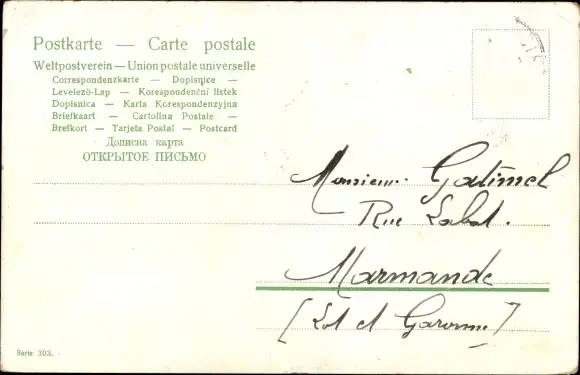 Postkarte — Carte postale
Weltpostverein — Union postale universelle
Correspondenzkarte — Dopisnice —
Levelező-Lap — Korespondenční listek
Dopisnica — Karta Korespondenzyjna
Briefkaart — Cartolina Postale —
Brefkort — Tarjeta Postal — Postcard
Дописна карта
ОТКРЫТОЕ ПИСЬМО
Monsieur Gatimel
Rue Labat.
Marmande
[Lot et Garonne]
Serie 303.